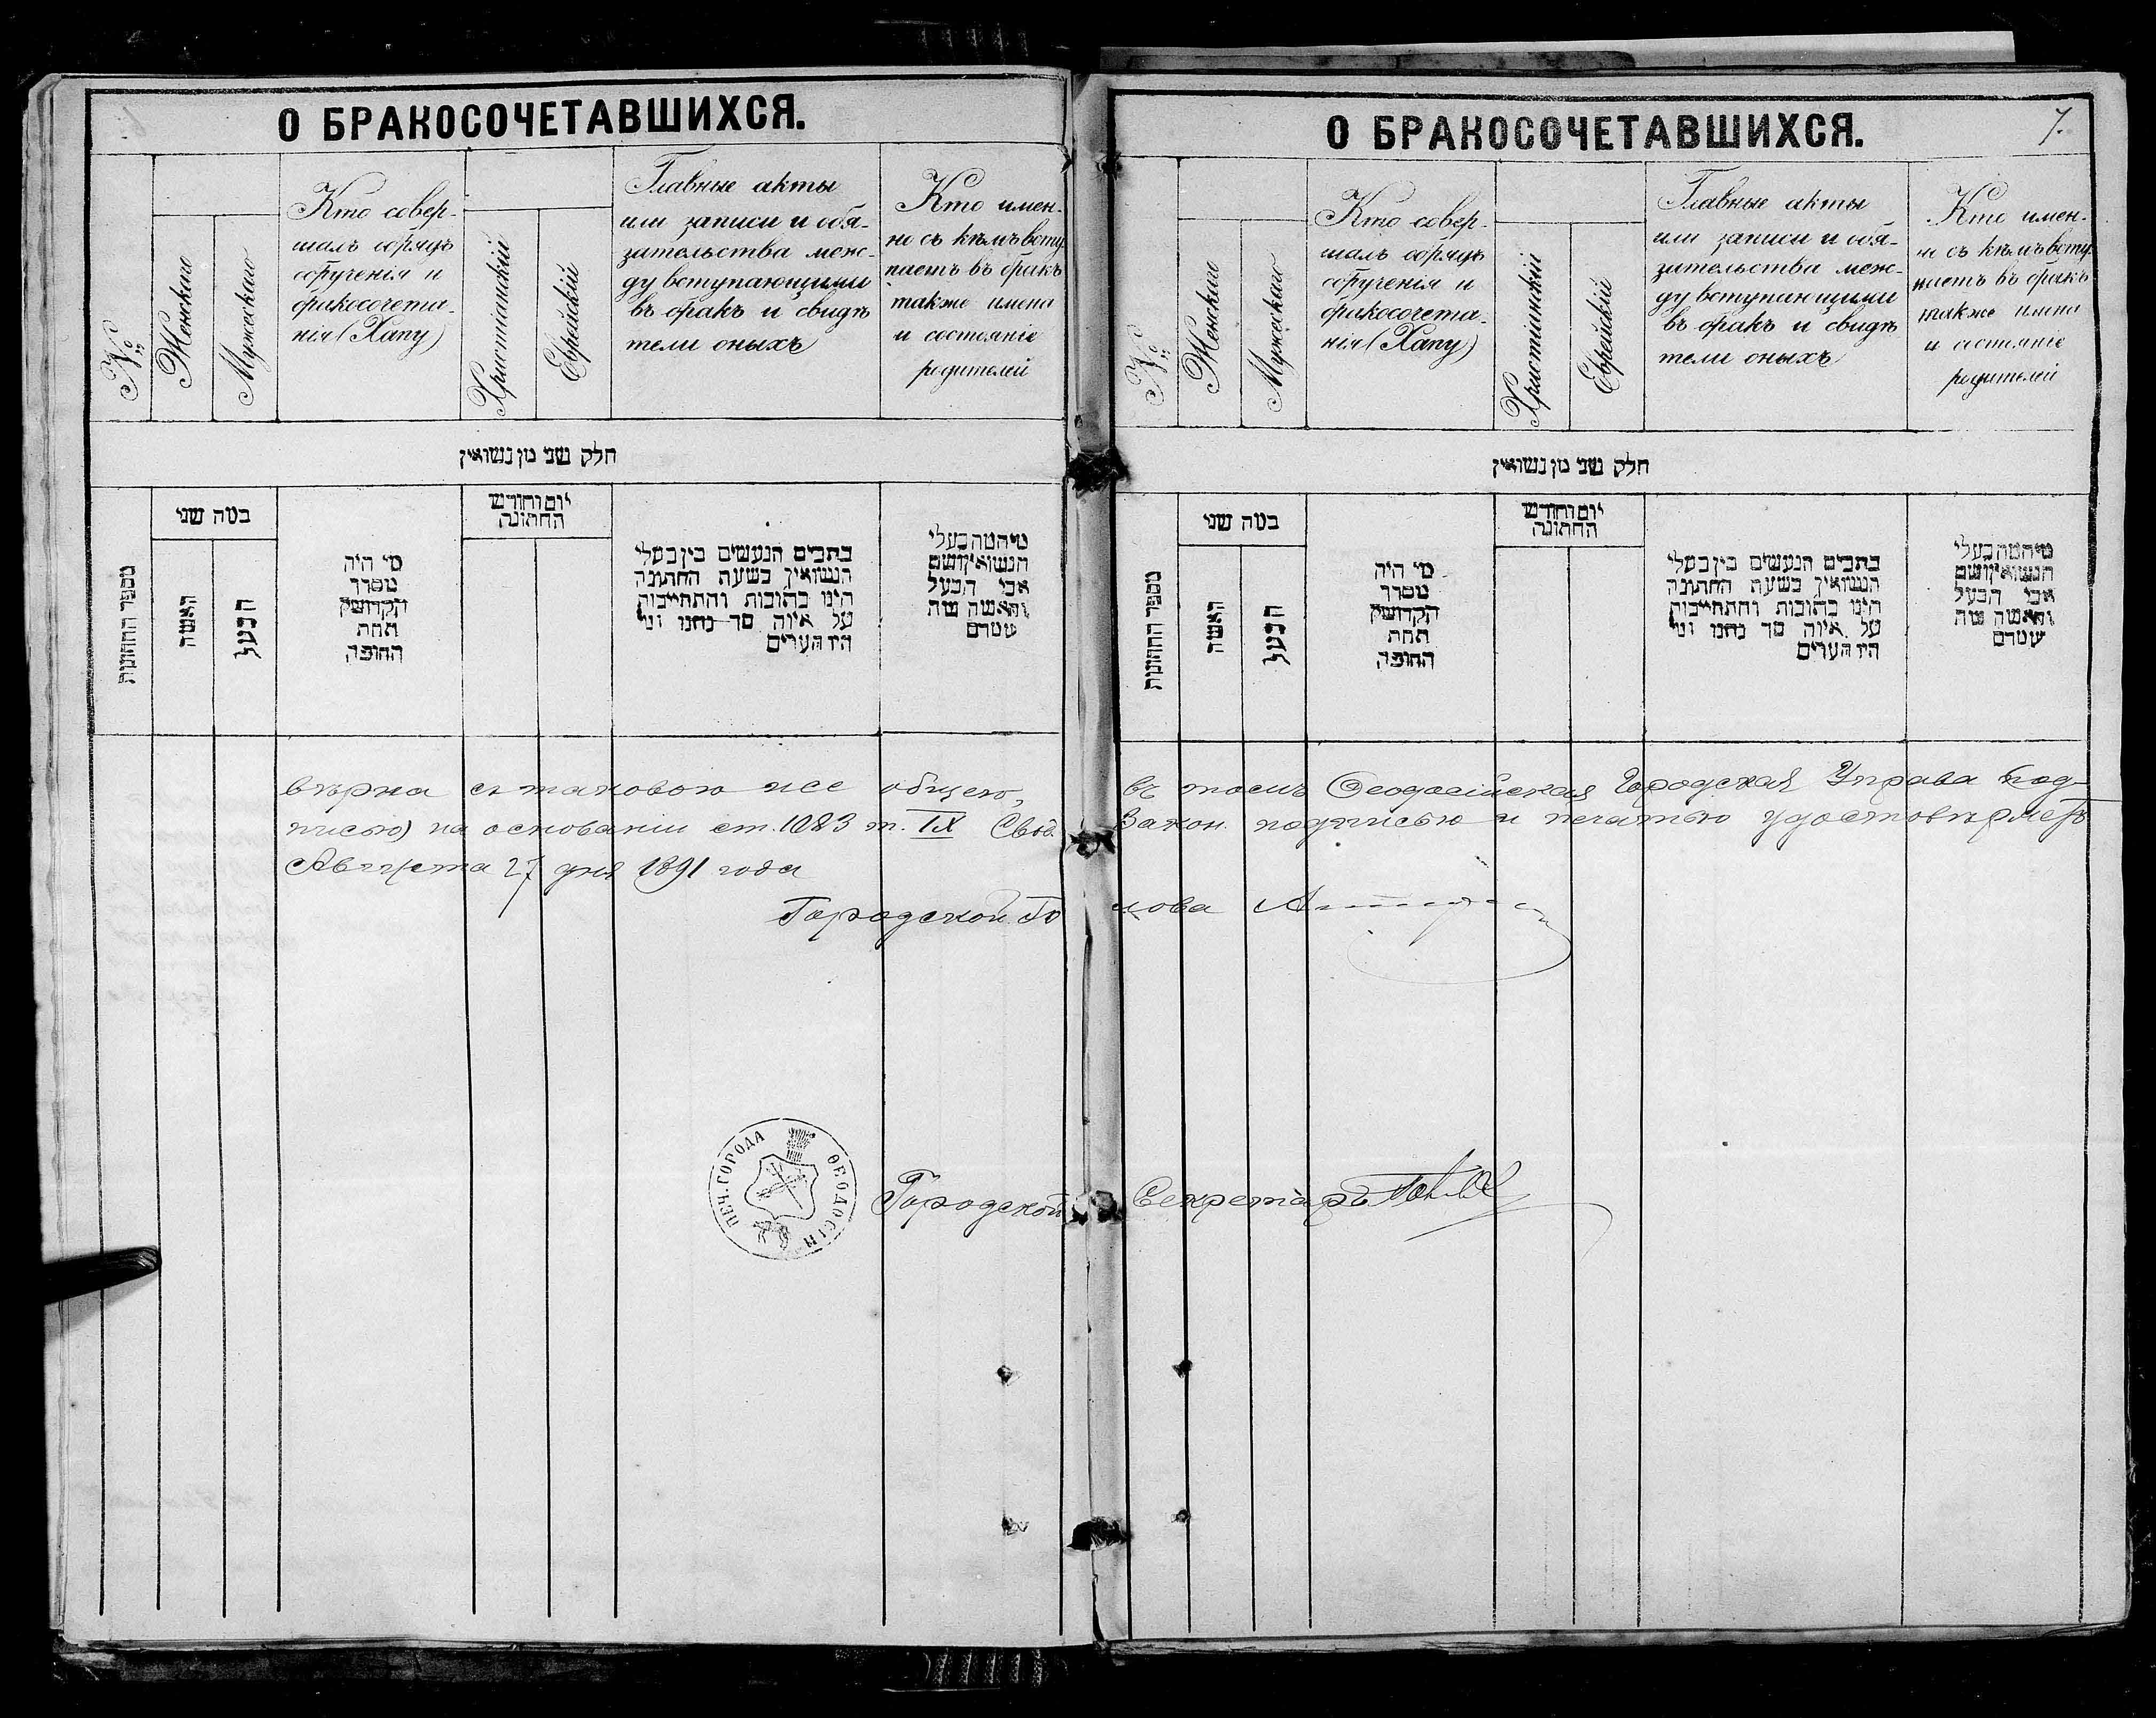 О БРАКОСОЧЕТАВШИХСЯ.
№
Женскаго
Мужескаго
Кто совер-
шалъ обрядъ
обрученія и
бракосочета-
нія (Хапу)
Христіанскій
Еврейскій
Главные акты
или записи и обя-
зательства меж-
ду вступающими
въ бракъ и свидѣ
тели оныхъ
Кто имен-
но съ кѣмъ всту
паетъ въ бракъ
также имена
и состояніе
родителей
חלק שני מן נשואין
מספר החתונות
כמה שני
האשה
הבעל
מי היה
מסדר
הקדושין
תחת
החופה
יום וחודש
החתונה
כתבים הנעשים בין בעלי
הנשואין בשעת החתונה
היינו כתובות והתחייבות
על איזה סך נתנו ומי
היו העדים
אבי הבעל
והאשה
О БРАКОСОЧЕТАВШИХСЯ.
7.
№
Женскаго
Мужескаго
Кто совер-
шалъ обрядъ
обрученія и
бракосочета-
нія (Хапу)
Христіанскій
Еврейскій
Главные акты
или записи и обя-
зательства меж-
ду вступающими
въ бракъ и свидѣ
тели оныхъ
Кто имен-
но съ кѣмъ всту
паетъ въ бракъ
также имена
и состояніе
родителей
חלק שני מן נשואין
מספר החתונות
כמה שני
האשה
הבעל
מי היה
מסדר
הקדושין
תחת
החופה
יום וחודש
החתונה
כתבים הנעשים בין בעלי
הנשואין בשעת החתונה
היינו כתובות והתחייבות
על איזה סך נתנו ומי
היו העדים
אבי הבעל
והאשה
вѣрна съ таковою же общею, въ томъ Ѳеодосійская Городская Управа под-
писью на основаніи ст. 1083 т. IX Свод. Закон. подписью и печатью удостовѣряетъ
Августа 27 дня 1891 года
Городской Голова
ПЕЧ. ГОРОДА ѲЕОДОСІИ
Городской Секретарь